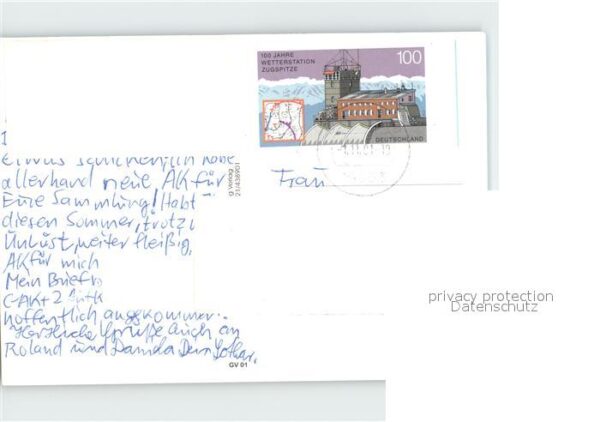 100 JAHRE
WETTERSTATION
ZUGSPITZE
100
DEUTSCHLAND
allerhand neue AK für
Eure Sammlung! Habt
diesen Sommer, trotz
Unlust, weiter fleißig
AK für mich
Mein Briefn
hoffentlich angekommen.
Herzliche Grüße Auch an
Roland und Daniela Dein Lothar.
Frau
g Verlag
GV 01
privacy protection
Datenschutz